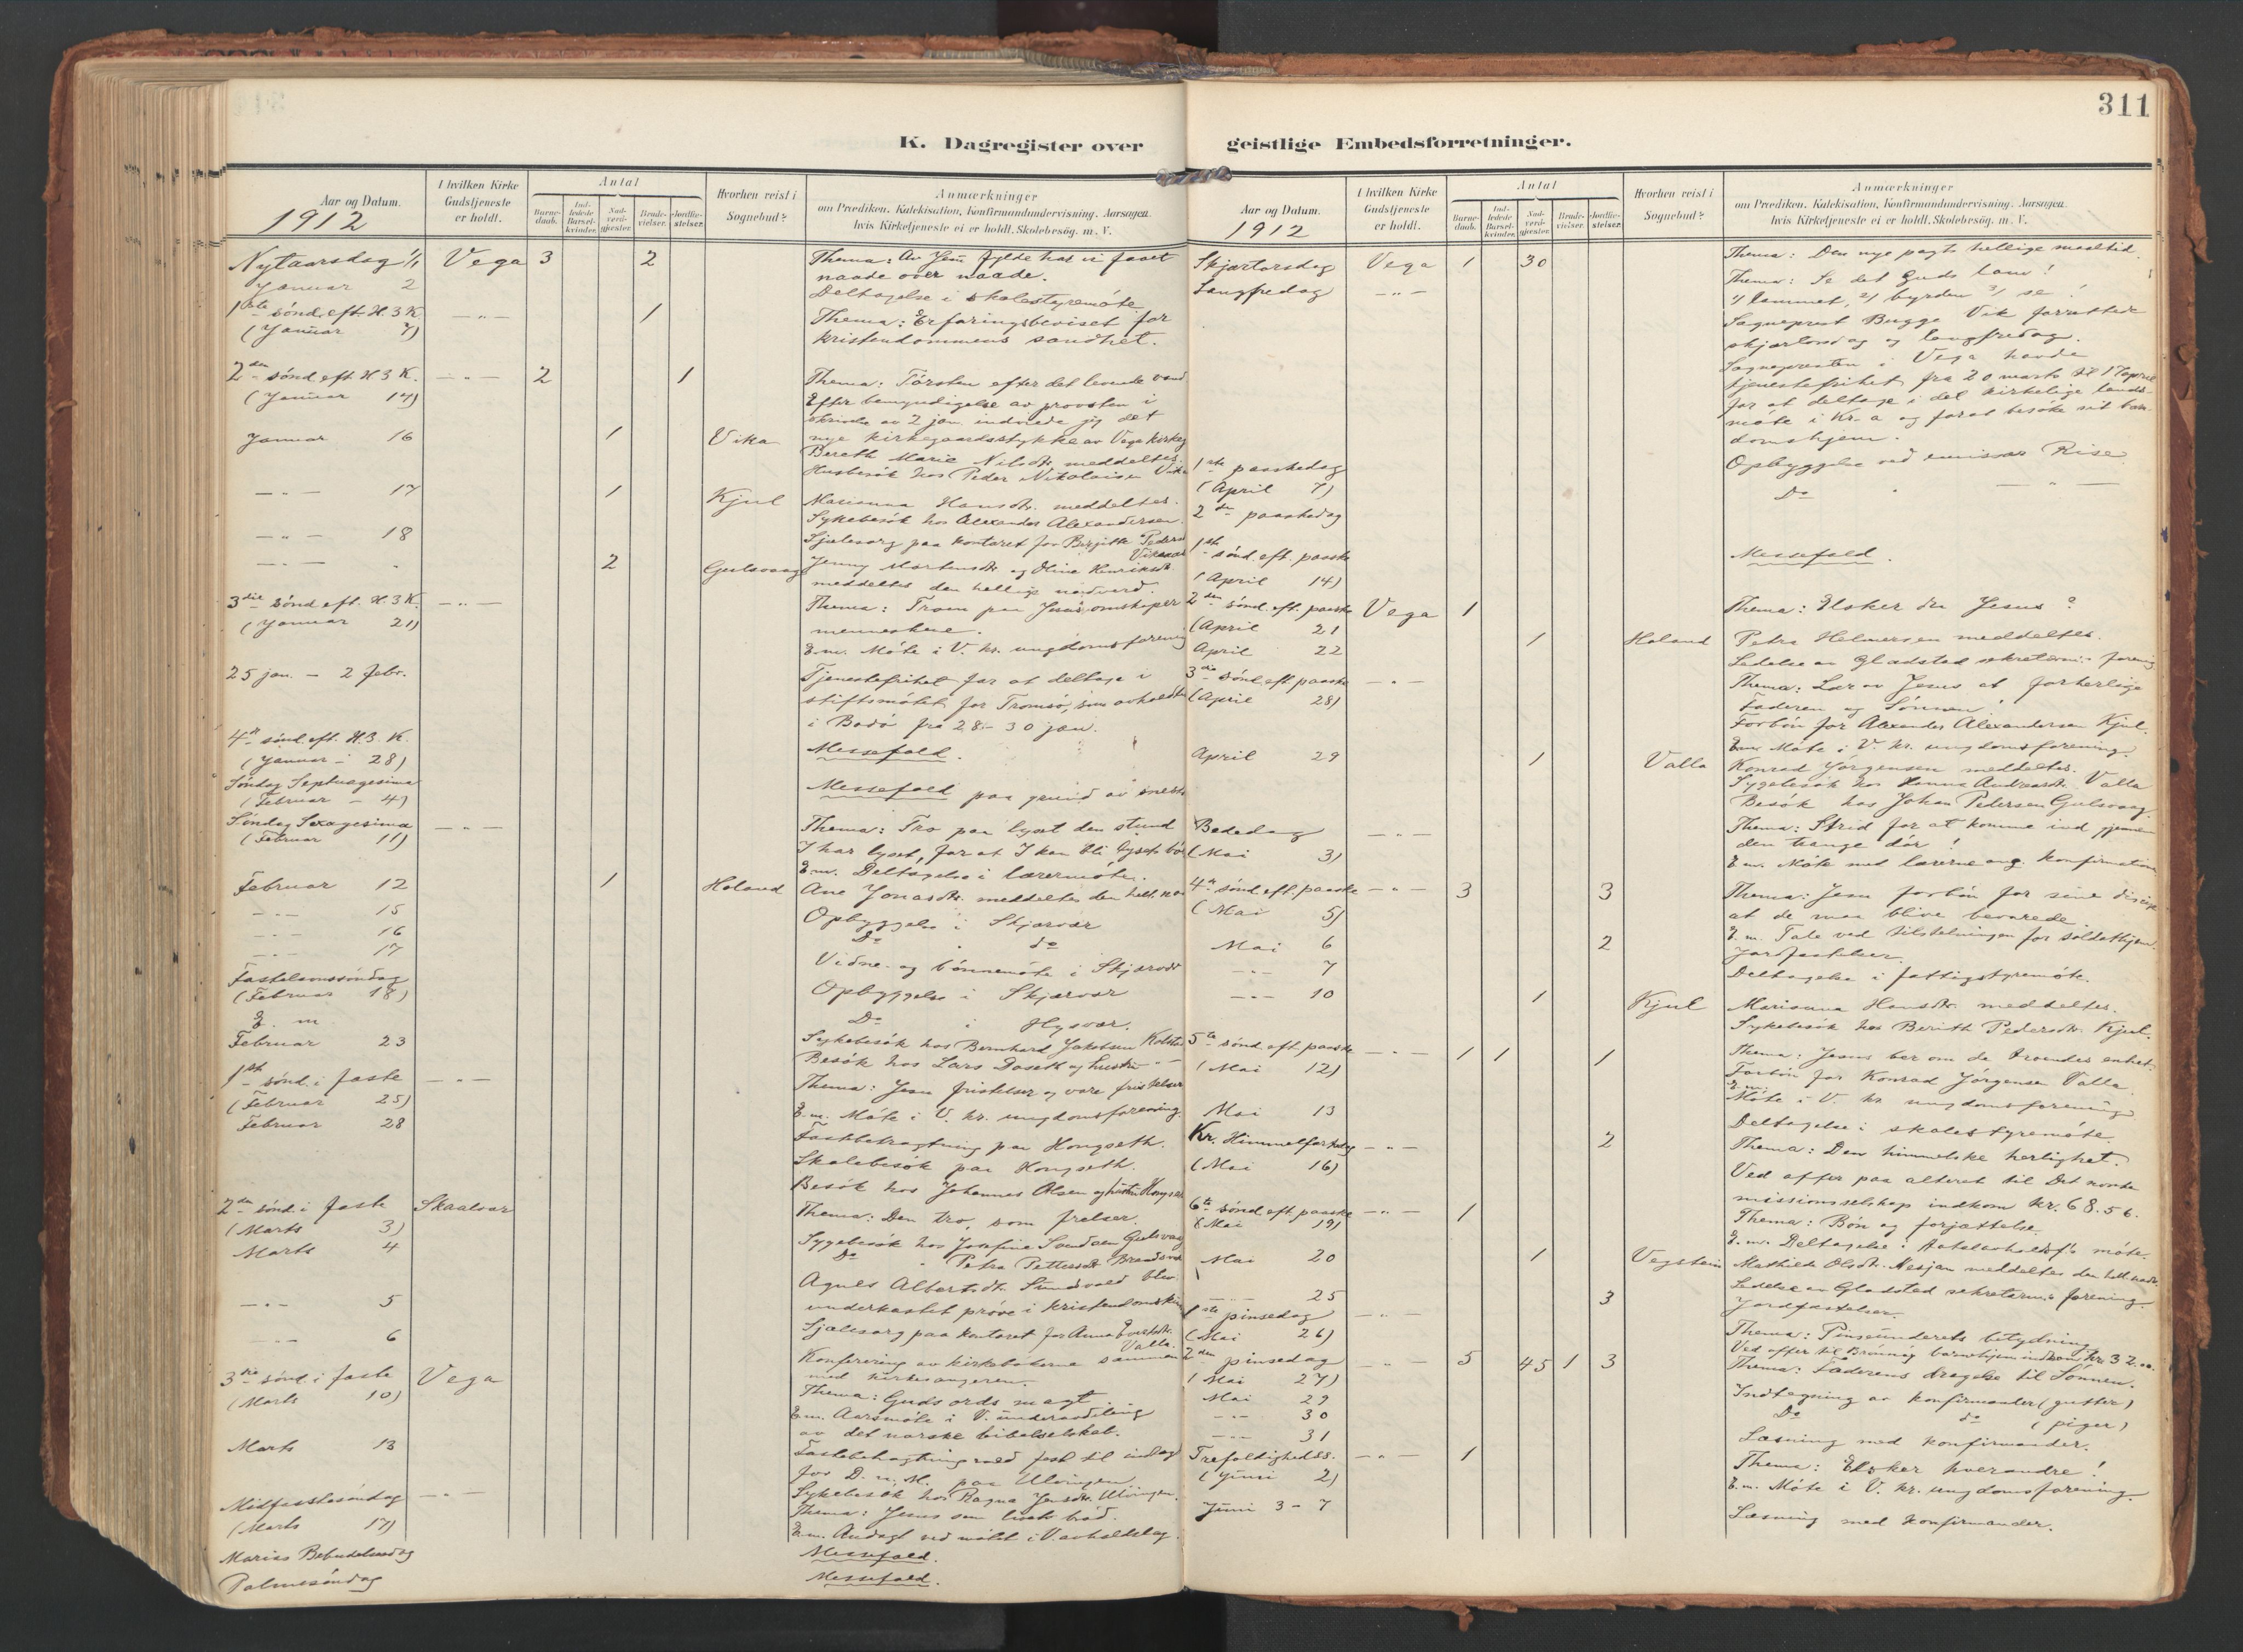 311
K. Dagregister over
geistlige Embedsforretninger.
Aar og Datum.
1912
I hvilken Kirke
Gudstjeneste
er holdt.
Antal
Barne-
daab.
Ind-
ledede
Barsel-
kvinder.
Nad-
verd-
gjæster.
Brude-
vielser.
Jordfæ-
stelser.
Hvorhen reist i
Sognebud?
Anmærkninger
om Prædiken, Katekisation, Konfirmandundervisning. Aarsagen.
hvis Kirketjeneste ei er holdt. Skolebesøg. m. V.
Nytaarsdag 1/1 Vega 3 2 Thema: Av Jesu fylde har vi faaet
naade over naade.
Januar 2 Deltagelse i skolestyremöte
1ste sönd. eft. H. 3 K. — " — 1 Thema: Erfaringsbeviset for
(Januar 7) kristendommens sandhet.
2den sönd eft. H 3 K. — " — 2 1 Thema: Törsten efter det levende vand
(Januar 14) Efter bemyndigelse av provsten i
skrivelse av 2 jan. indviede jeg det
nye kirkegaardsstykke av Vega kirkeg
Januar 16 1 Vika Bereth Marie Nilsdtr. meddeltes.
Husbesök hos Peder Nikolaisen Vika
— " — 17 1 Kjul Marianna Hansdtr. meddeltes.
Sykebesök hos Alexander Alexandersen.
— " — 18 Sjælesorg paa kontoret for Birgitte Peders
— " — " 2 Gulsvaag Jenny Martensdtr. og Oline Henriksdtr.
meddeltes den hellige nadverd.
3die sönd eft. H. 3 K. — " — Thema: Troen paa Jesus omskaper
(Januar 21) menneskene.
E.m. Möte i V. kr. ungdomsforening
25 jan. – 2 febr. Tjenestefrihet for at deltage i
stiftsmötet for Tromsö, som avholdtes
i Bodö fra 28 – 30 jan.
4de sönd. eft. H. 3. K.
(Januar 28) Messefald.
Söndag Septuagesima
(Februar – 4) Messefald paa grund av
Söndag Sexagesima — " — Thema: Tro paa lyset den stund
(Februar 11) I har lyset, for at I kan bli lysets bör
E.m. Deltagelse i lærermöte.
Februar 12 1 Holand Ane Jonasdtr. meddeltes den hell. nad
— " — 15 Opbyggelse i Skjærvær
— " — 16 Do " do
— " — 17 Vidne- og bönnemöte i Skjærvær
Fastelavnssöndag
(Februar 18) Opbyggelse i Skjærvær
E. m Do i Hysvær.
Februar 23 Sykebesök hos Bernhard Jakobsen Kolstad
Besök hos Lars Doseth og hustru " —
1ste sönd. i faste — " — Thema: Jesu fristelser og vore fristelser
(Februar 25) E.m. Möte i V. kr. ungdomsforening.
Februar 28 Fastebetragtning paa Hongseth.
Skolebesök paa Hongseth.
Besök hos Johannes Olsen og hustru Hongseth
2den sönd i faste Skaalvær Thema: Den tro, som frelser.
(Marts 3)
Marts 4 Sygebesök hos Josefine Svendsen Gulsvaag
Do " Petra Pettersdtr.
— " — 5 Agnes Albertsdtr. Sundsvold blev
underkastet pröve i kristendomskun
— " — 6 Sjælesorg paa kontoret for Anna
Valla.
Konferering av kirkebökerne sammen
med kirkesangeren.
3die sönd. i faste Vega Thema: Guds ords magt.
(Marts 10) E.m. Aarsmöte i V. underavdeling
av det norske bibelselskab.
Marts 13 Fastebetragtning ved fest til indtægt
for D. n. M. paa Ulvingen
Sykebesök hos Ragna Jensdtr. Ulvingen.
Midfastesöndag — " — Thema: Jesus som livets bröd.
(Marts 17) E.m. Andagt ved möte i V. avholdslag.
Mariæ Bebudelsesdag Messefald.
Palmesöndag Messefald.
Aar og Datum.
1912
I hvilken Kirke
Gudstjeneste
er holdt.
Antal
Barne-
daab.
Ind-
ledede
Barsel-
kvinder.
Nad-
verd-
gjæster.
Brude-
vielser.
Jordfæ-
stelser.
Hvorhen reist i
Sognebud?
Anmærkninger
om Prædiken, Katekisation, Konfirmandundervisning. Aarsagen.
hvis Kirketjeneste ei er holdt. Skolebesög. m. V.
Skjærtorsdag Vega 1 30 Thema: Den nye pagts hellige maaltid.
Langfredag — " — Thema: Se det Guds lam!
1) lammet, 2) byrden 3) se!
Sogneprest Bugge Vik forrettede
skjærtorsdag og langfredag.
Sognepresten i Vega havde
tjenestefrihet fra 20 marts til 17 april
for at deltage i det kirkelige lands-
möte i Kr.a og for at besöke sit barn-
domshjem.
1ste paaskedag Opbyggelse ved emissær Rise
(April 7)
2den paaskedag Do " — " —
1ste sönd. eft. paaske Messefald.
(April 14)
2den sönd. eft. paaske Vega 1 Thema: Elsker du Jesus?
(April 21
April 22 1 Holand Petra Helmersen meddeltes.
Ledelse av Gladsted sekretærens forenig
3die sönd. eft paaske — " — Thema: Lær av Jesus at forherlige
(April 28) Faderen og Sönnen!
Forbön for Alexander Alexandersen Kjul.
E.m. Möte i V. kr. ungdomsforening.
April 29 1 Valla Konrad Jörgensen meddeltes.
Sygebesök hos Hanna Andreasdtr. Valla
Besök hos Johan Pedersen Gulsvaag.
Bededag — " — Thema: Strid for at komme ind gjennem
(Mai 3) den trange dör!
E.m. Möte med lærerne ang. konfirmation
4de sönd eft. paaske — " — 3 3 Thema: Jesu forbön for sine discip
(Mai 5) at de maa blive bevarede.
E.m. Tale ved tilstelningen for soldathjem
Mai 6 2 Jordfæstelser.
— " — 7 Deltagelse i fattigstyremöte.
— " — 10 1 Kjul Marianna Hansdtr. meddeltes.
Sykebesök hos Berith Pedersdtr. Kjul.
5te sönd. eft. paaske — " — 1 1 1 Thema: Jesus ber om de troendes enhet.
(Mai 12) Forbön for Konrad Jörgensen Valla.
E.m.
Möte i V. kr. ungdomsforening
Mai 13 Deltagelse i skolestyremöte.
Kr. Himmelfartsdag — " — 2 Thema: Den himmelske herlighet.
(Mai 16) Ved offer paa alteret til Det norske
missionsselskap indkom kr. 68.56.
6te sönd. eft. paaske — " — 1 Thema: Bön og forjættelse.
(Mai 19) E.m. Deltagelse i möte.
Mai 20 1 Vegstein Mathilde Olsdtr. Nesjan meddeltes den hell. nadv.
Ledelse av Gladsted sekretærens forening
— " — 25 3 Jordfæstelser.
1ste pinsedag — " — Thema: Pinseunderets betydning.
(Mai 26) Ved offer til Brönnöy barnehjem indkom kr. 32.00
2den pinsedag — " — 5 45 1 3 Thema: Faderens dragelse til Sönnen.
(Mai 27)
Mai 29 Indtegning av konfirmander (gutter)
— " — 30 Do do (piger)
— " — 31 Læsning med konfirmander.
Trefoldighedss. — " — 1 Thema: Elsker hverandre!
(Juni 2) E.m. Möte i V. kr. ungdomsforening.
Juni 3 – 7 Læsning med konfirmander.